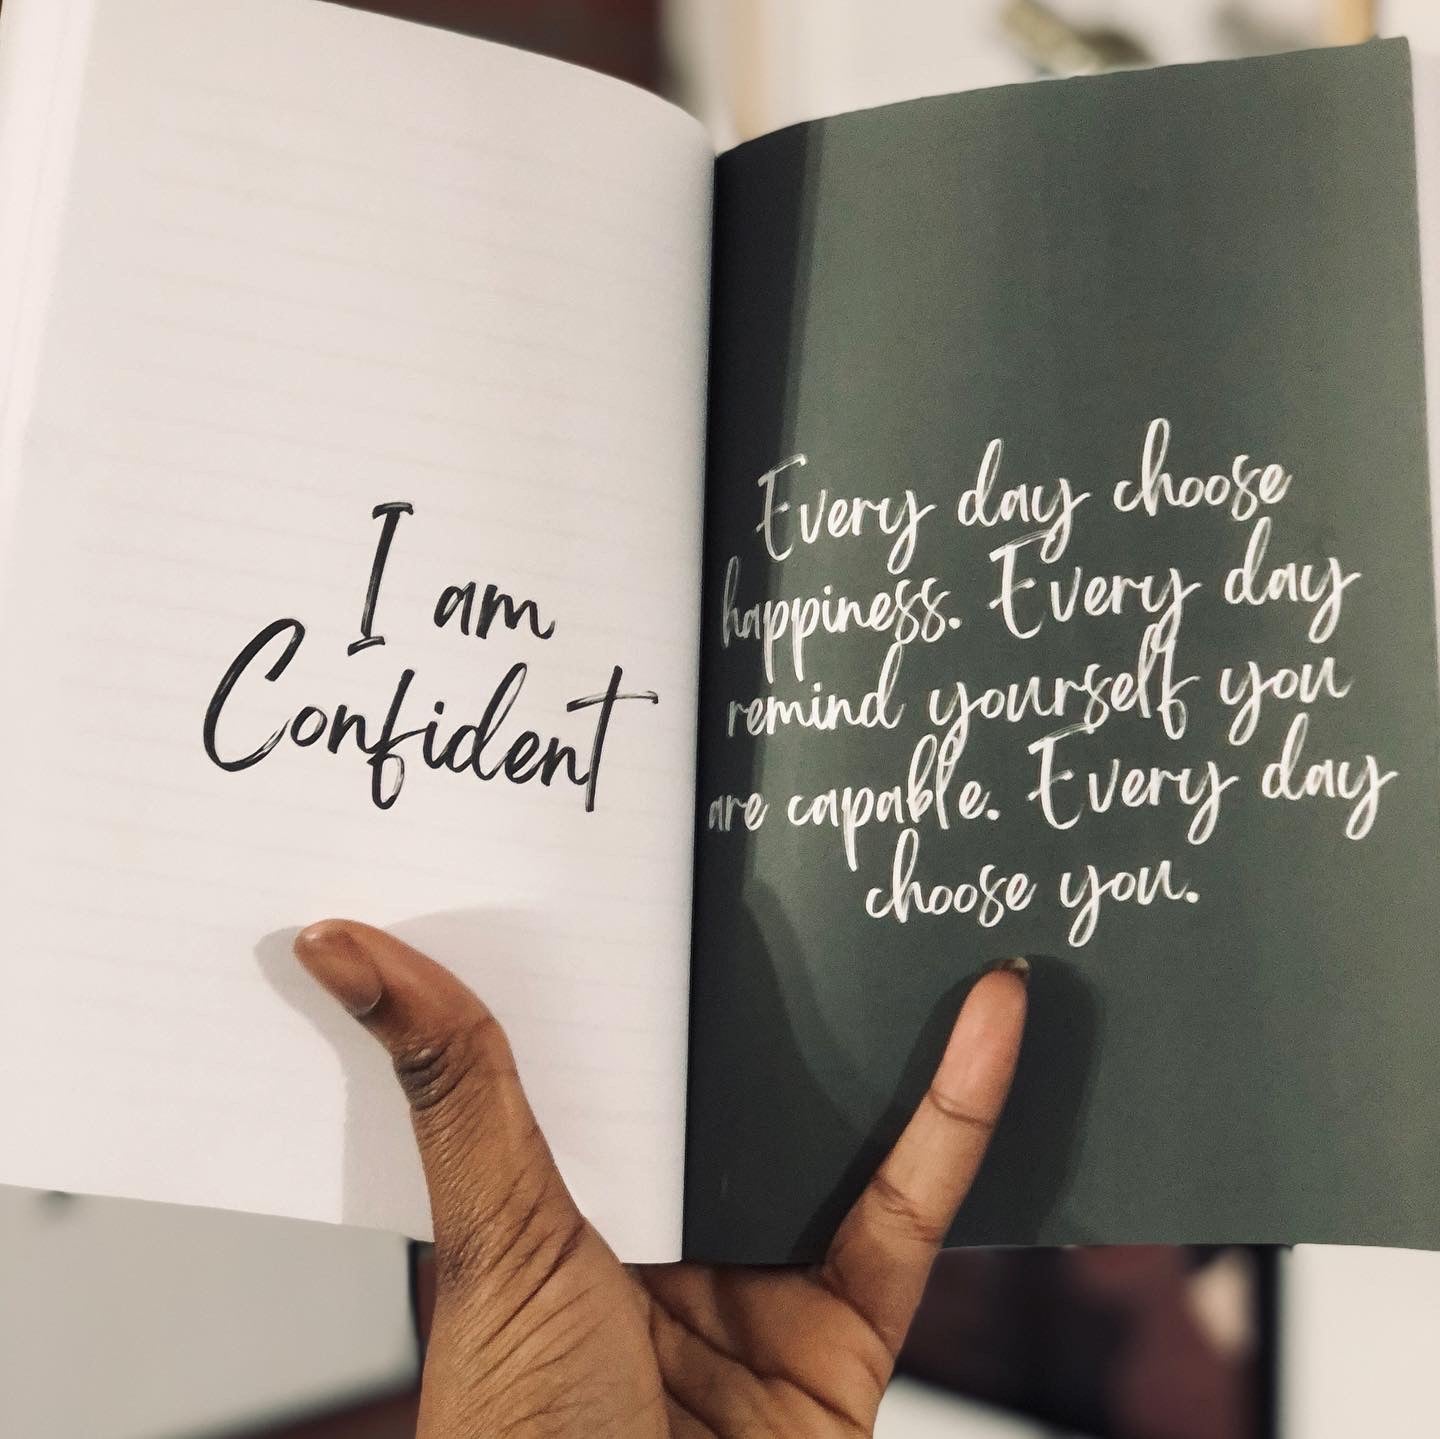 I am
Confident
Every day choose
happiness. Every day
remind yourself you
are capable. Every day
choose you.